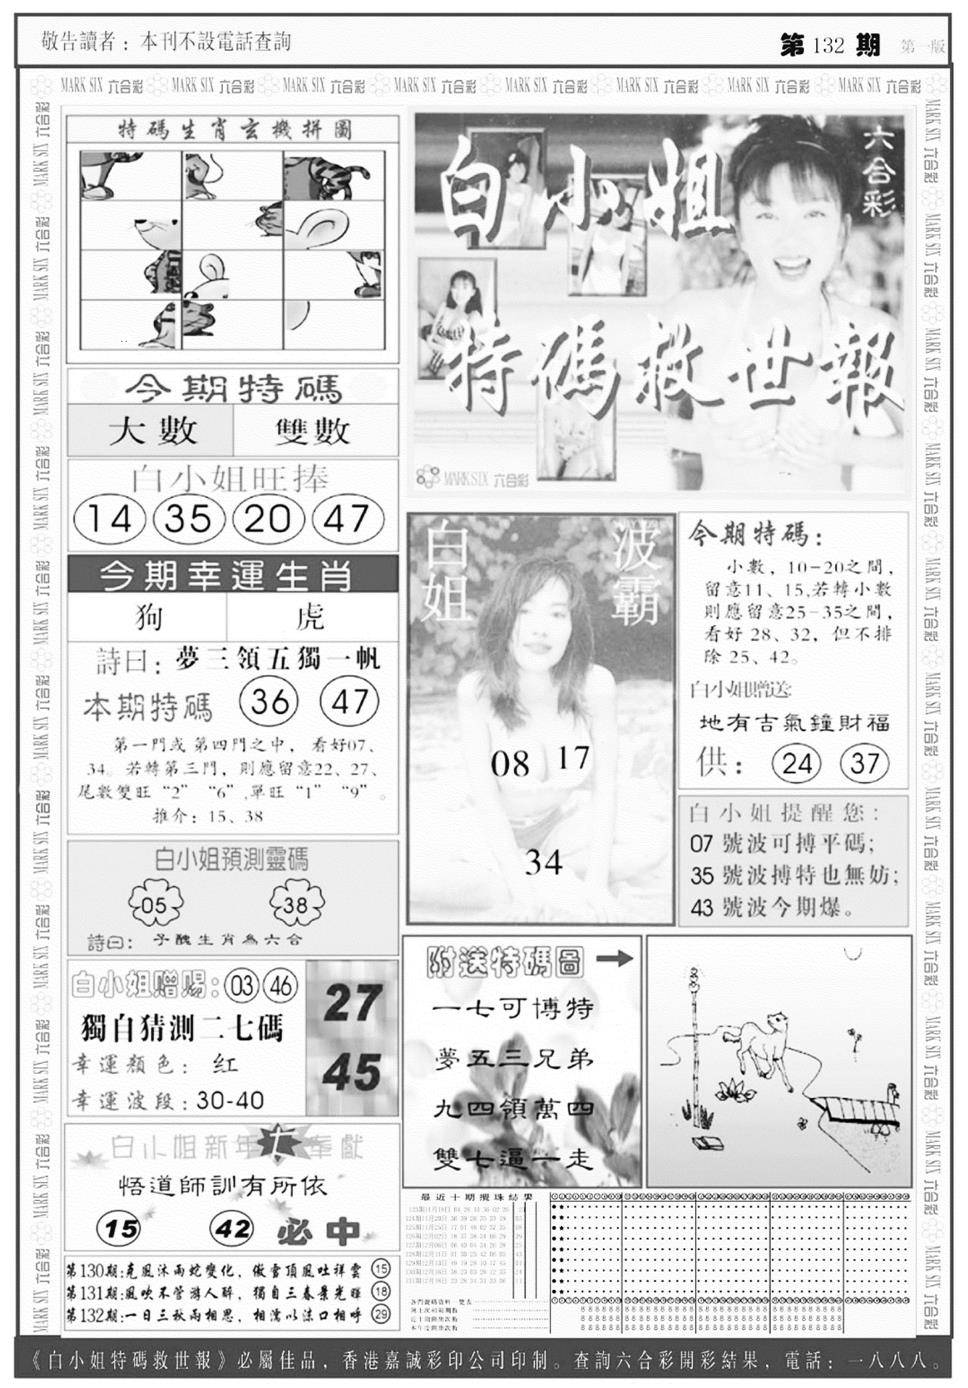 敬告讀者：本刊不設電話查詢
第 132 期 第一版
MARK SIX 六合彩 MARK SIX 六合彩 MARK SIX 六合彩 MARK SIX 六合彩 MARK SIX 六合彩 MARK SIX 六合彩 MARK SIX 六合彩 MARK SIX 六合彩
特碼生肖玄機拼圖
六合彩
白小姐
特碼救世報
MARK SIX 六合彩
今期特碼
大數 雙數
白小姐旺捧
14 35 20 47
今期幸運生肖
狗 虎
詩曰：夢三領五獨一帆
本期特碼 36 47
第一門或第四門之中，看好07、
34。若轉第三門，則應留意22、27、
尾數雙旺“2” “6”,單旺“1” “9”。
推介：15、38
白小姐預測靈碼
05 38
詩曰：子醜生肖為六合
白小姐贈賜：03 46
獨自猜測二七碼
幸運顏色：红
幸運波段：30-40
27
45
白小姐新年七奉獻
悟道師訓有所依
15 42 必中
第130期:克風沐雨蛇變化，傲雪頂風吐祥雲 15
第131期:風吹不管游人醉，獨自三春景光暉 18
第132期:一日三秋兩相思，相濡以沫口相呼 29
白姐 波霸
08 17
34
今期特碼：
小數，10-20之間，
留意11、15,若轉小數
則應留意25-35之間，
看好 28、32，但不排
除 25、42。
白小姐贈送
地有吉氣鐘財福
供：24 37
白小姐提醒您：
07 號波可搏平碼；
35 號波搏特也無妨；
43 號波今期爆。
附送特碼圖
一七可博特
夢五三兄弟
九四領萬四
雙七逼一走
最近十期攪珠結果
《白小姐特碼救世報》必屬佳品，香港嘉誠彩印公司印制。查詢六合彩開彩結果，電話：一八八八。